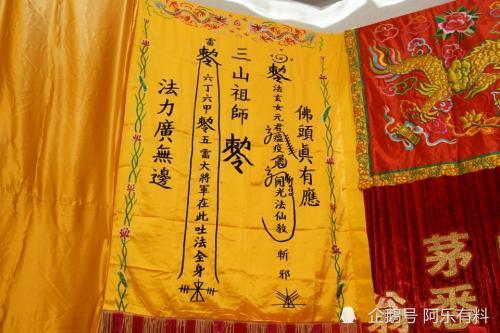 佛頭眞有應
敕法玄女元君瘟疫開光法仙教
斬邪
三山祖師敕
雷
敕六丁六甲敕五雷大將軍在此吐法全身
法力廣無邊
茅
企鹅号 阿乐有料